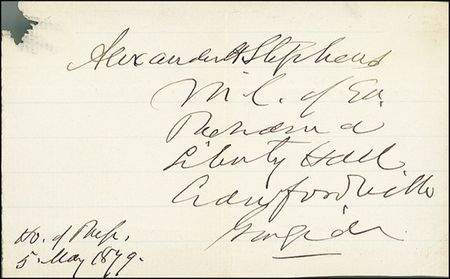 Alexander H Stephens
M. C. of Ga.
Liberty Hall
Crawfordville
Georgia.
Ho. of Reps.
5. May 1879.